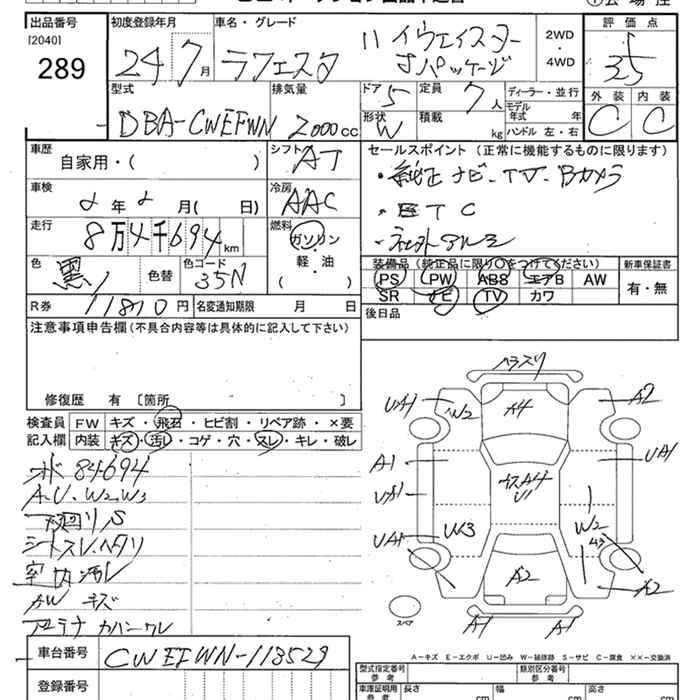 出品番号 初度登録年月 車名・グレード 評価点
[2040]
289
24 7月 ラフェスタ ハイウェイスター
Jパッケージ
2WD
・
4WD
3.5
型式 排気量 ドア 5 定員 7人 ディーラー・並行 外装 内装
モデル年式 年式
DBA-CWEFWN 2000cc 形状 W 積載 kg ハンドル 左・右 C C
車歴 シフト AT セールスポイント (正常に機能するものに限ります)
自家用・( )
・純正ナビ・TV・Bカメラ
車検 2年2月( 日) 冷房 AAC
・ETC
走行 8万4千694km 燃料 ガソリン・軽・油 ( )
・社外アルミ
色 黒 色替 色コード 35N
装備品 (純正品に限り○をつけてください) 新車保証書
PS PW ABS エアB AW 有・無
SR ナビ TV カワ
R券 11870円 名変通知期限 月 日
後日品
注意事項申告欄(不具合内容等は具体的に記入して下さい)
修復歴 有 [箇所 ]
検査員 FW キズ・飛石・ヒビ割・リペア跡・×要
記入欄 内装 キズ・汚レ・コゲ・穴・スレ・キレ・破レ
84694
A.U.W2.W3
下廻りS
シートスレ.ヘタリ
室内汚レ
AW キズ
アンテナカバーワレ
ヘラズリ
UA1 W2 A4 A2
A1 UA1
A4
U1
UA1 W3 W2
A2 A2
A1 A1
スペア
A-キズ E-エクボ U-凹み W-補修跡 S-サビ C-腐食 ××-交換済
車台番号 CWEFWN-113529
登録番号
型式指定番号 参考 類別区分番号 参考
車庫証明用 参考 長さ cm 幅 cm 高さ cm